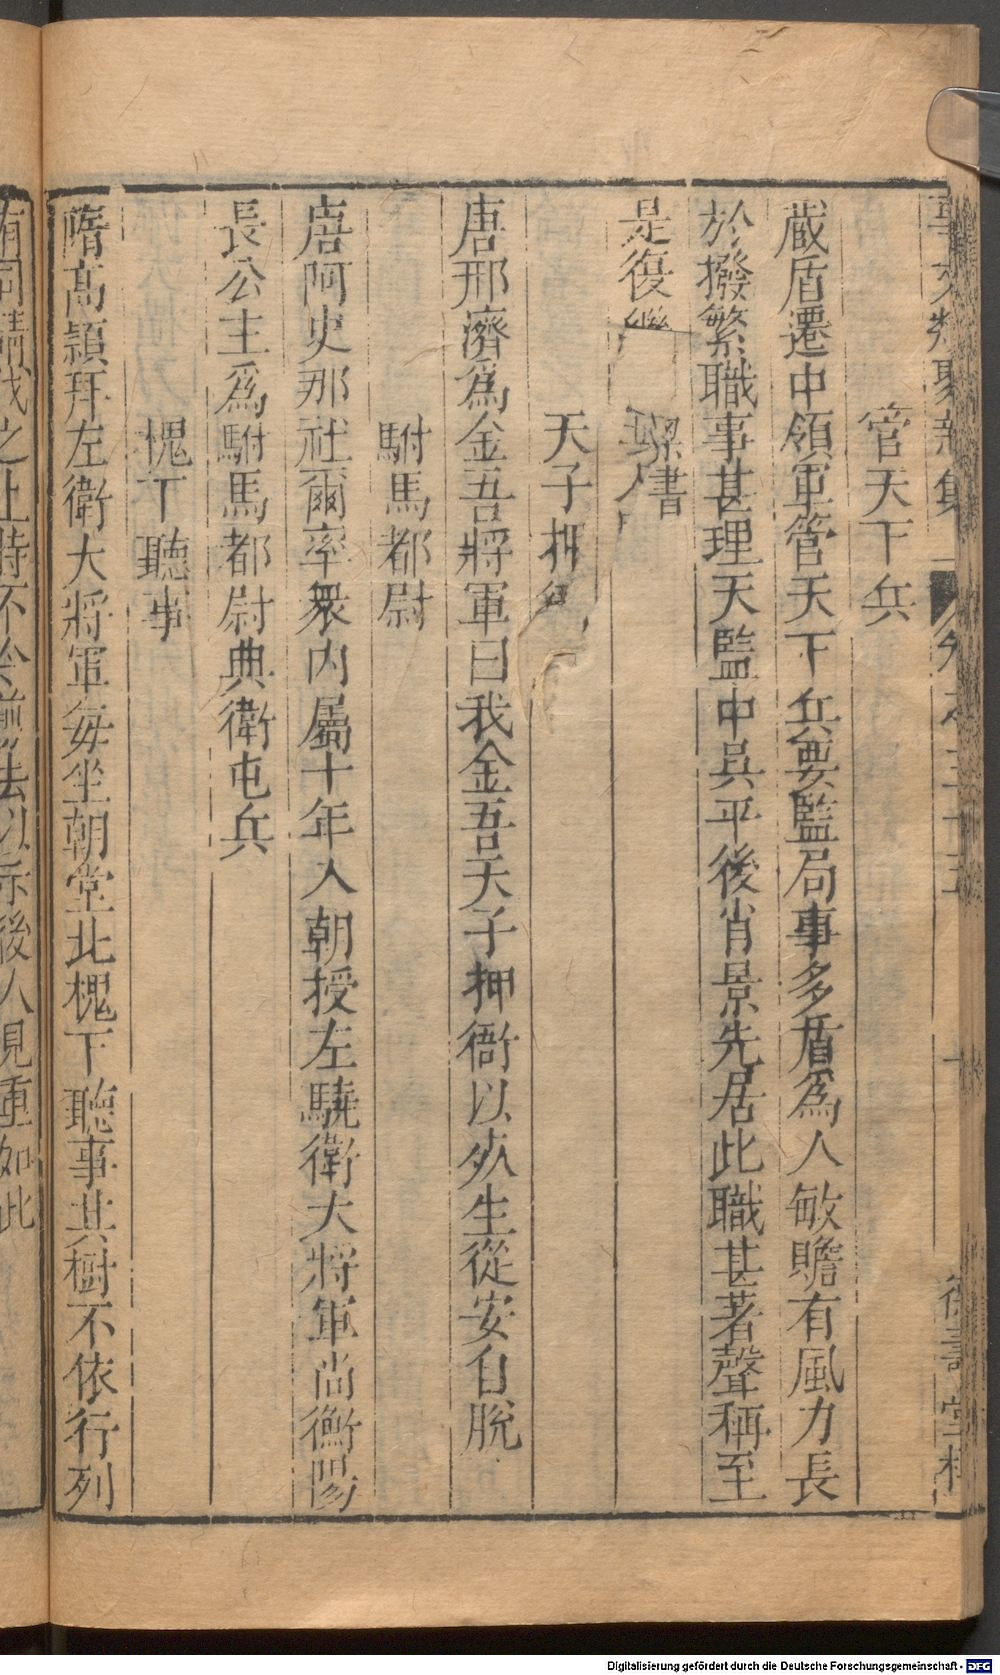 事文類聚新集 卷之三十五 十 德壽堂梓
管天下兵
臧盾遷中領軍管天下兵要監局事多盾爲人敏贍有風力長
於撥繁職事甚理天監中兵平後肖景先居此職甚著聲稱至
是復繼
書
天子押
唐邢濟爲金吾將軍曰我金吾天子押衙以死生從安自脫
駙馬都尉
唐阿史那社爾率衆內屬十年入朝授左驍衛大將軍尚衡陽
長公主爲駙馬都尉典衛屯兵
槐下聽事
隋高頴拜左衛大將軍毎坐朝堂北槐下聽事其樹不依行列
有司請伐之上特不
後人見重如此
Digitalisierung gefördert durch die Deutsche Forschungsgemeinschaft - DFG